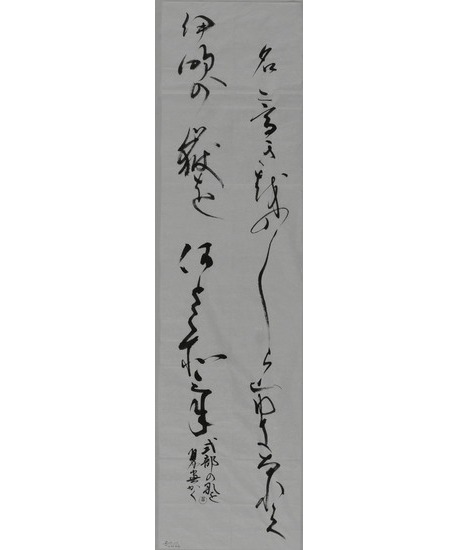 名二高き越のしら山ゆきなれて
伊吹の嶽を何とこそみね
式部の歌を